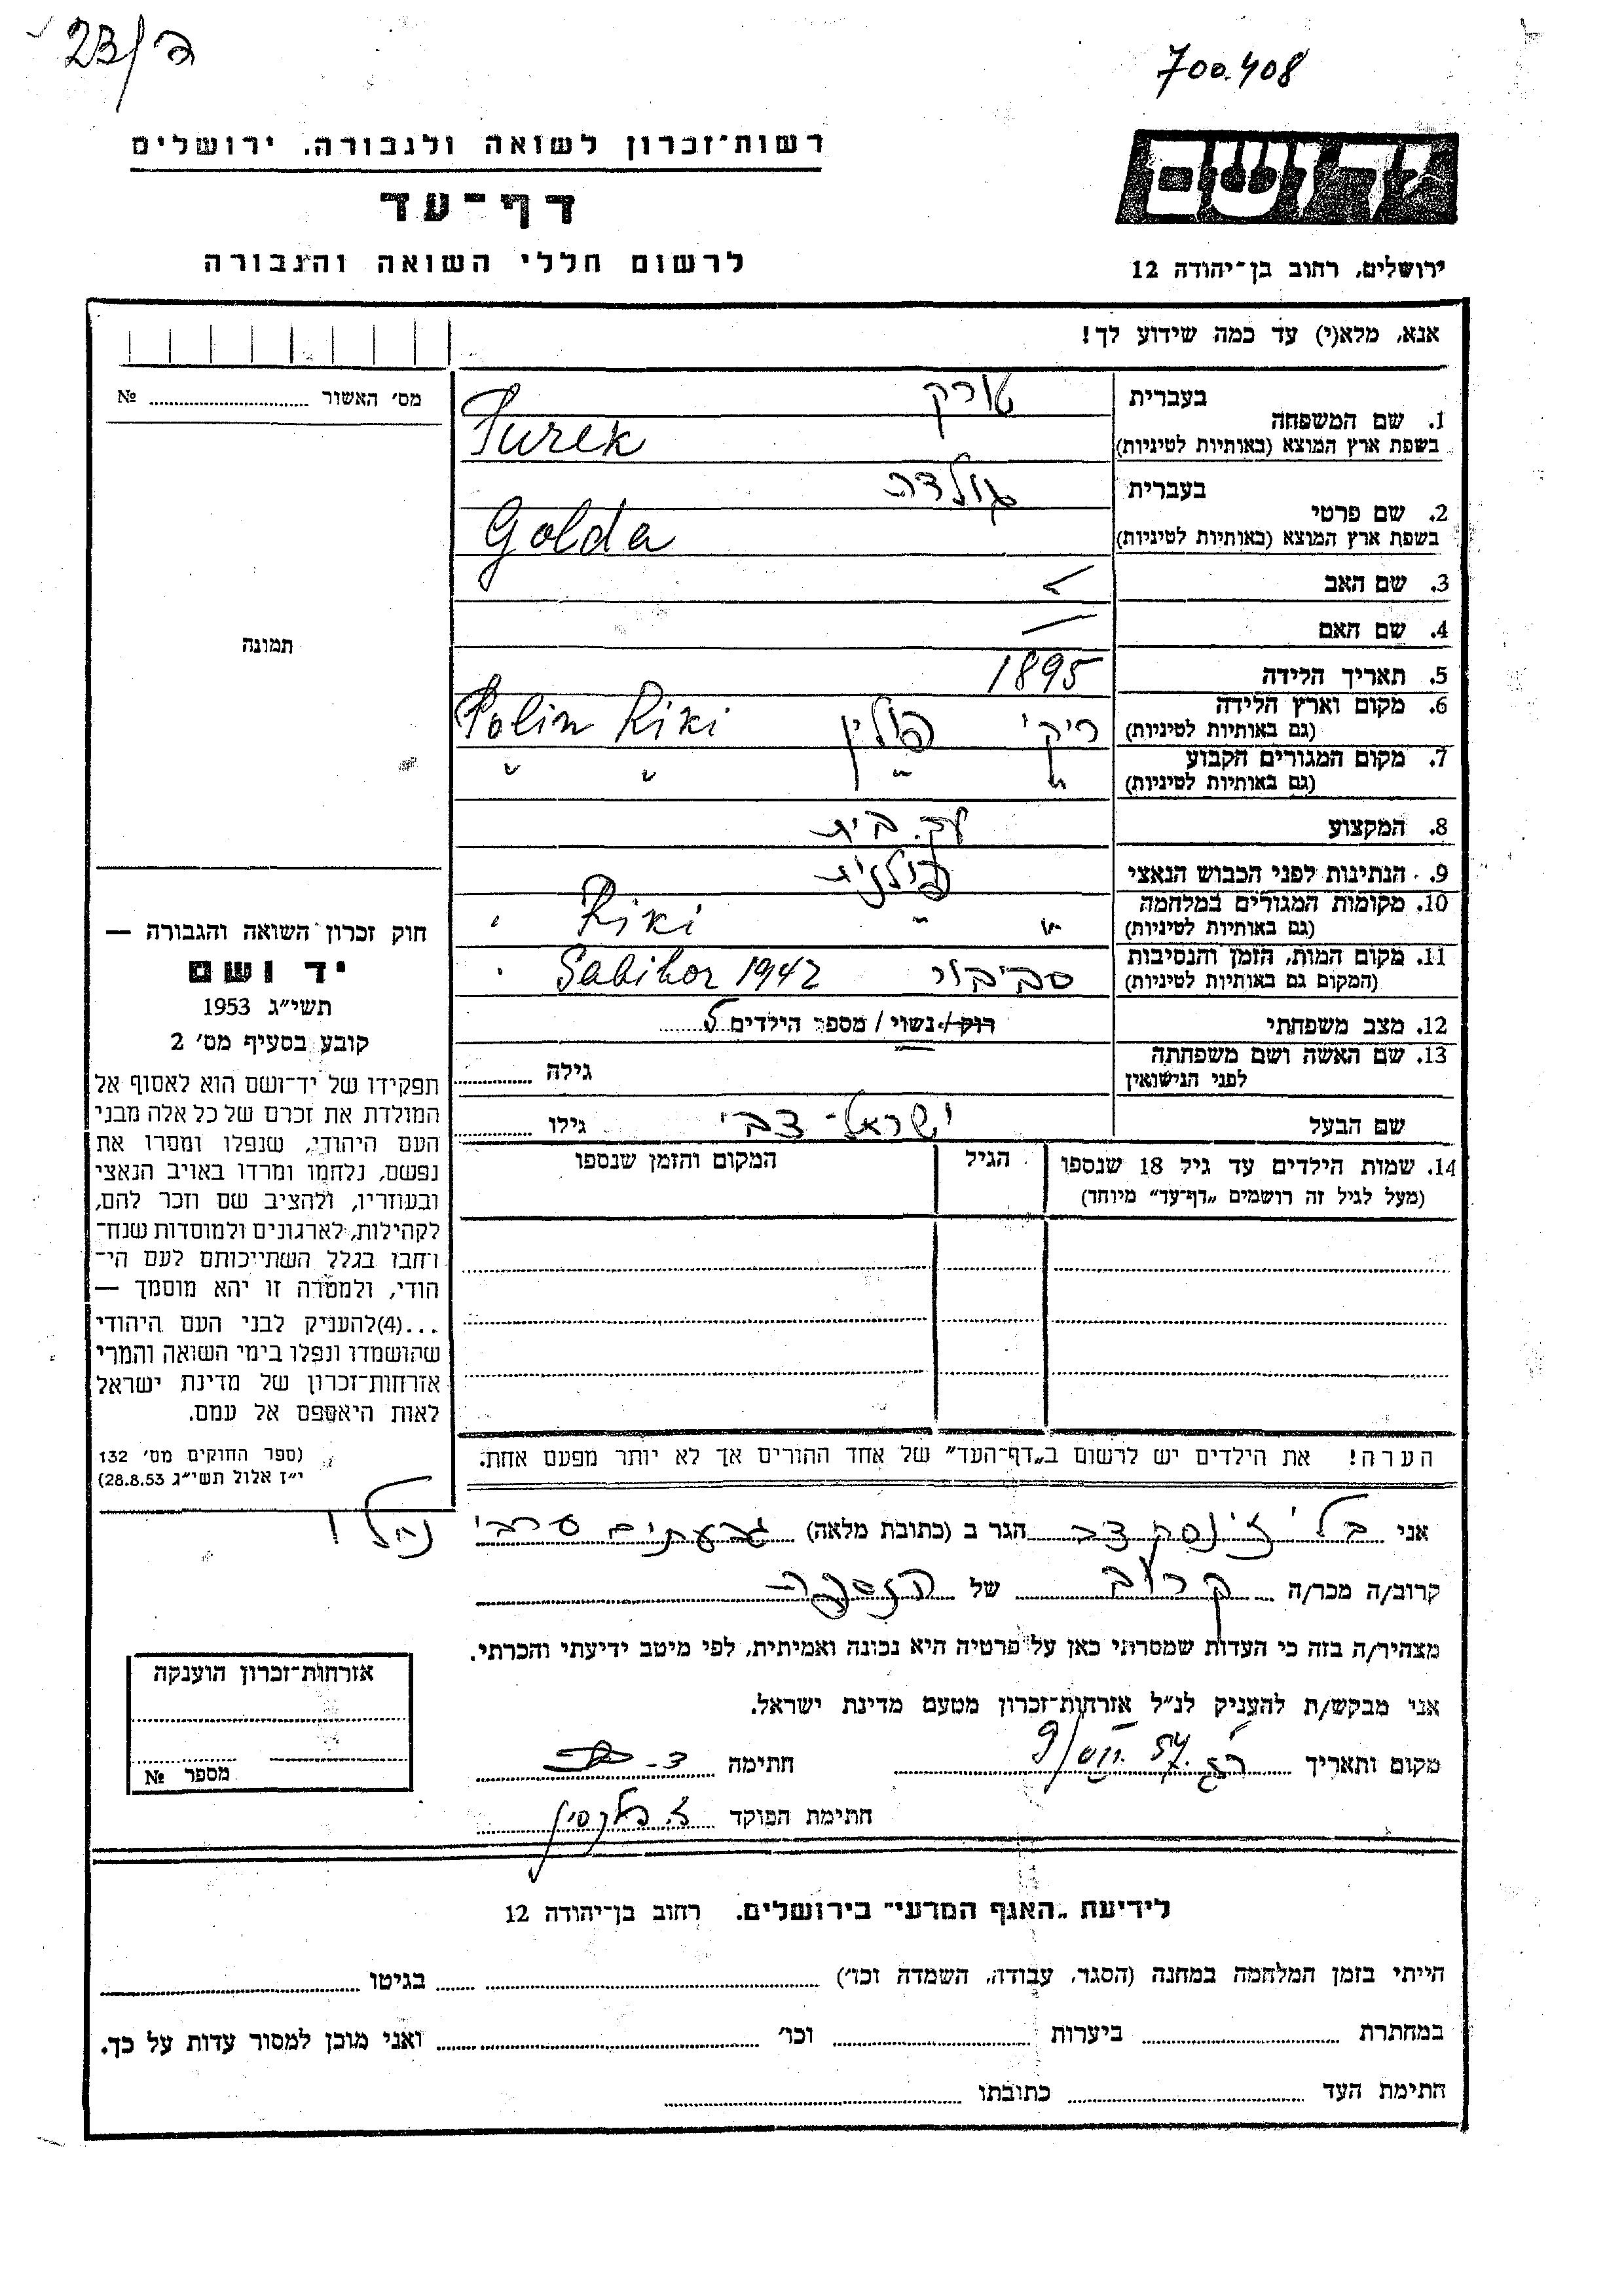 23/ב
700.408
יד ושם
ירושלים, רחוב בן־יהודה 12
רשות־זכרון לשואה ולגבורה, ירושלים
דף־עד
לרשום חללי השואה והגבורה
אנא, מלא(י) עד כמה שידוע לך!
מס׳ האשור № 
תמונה
1. שם המשפחה
בעברית טורק
בשפת ארץ המוצא (באותיות לטיניות) Turek
2. שם פרטי
בעברית גולדה
בשפת ארץ המוצא (באותיות לטיניות) Golda
3. שם האב
4. שם האם
5. תאריך הלידה 1895
6. מקום וארץ הלידה ריקי פולין Polin Riki
(גם באותיות לטיניות)
7. מקום המגורים הקבוע " " " "
(גם באותיות לטיניות)
8. המקצוע עק. בית
9. הנתינות לפני הכבוש הנאצי פולנית
10. מקומות המגורים במלחמה " " Riki
(גם באותיות לטיניות)
11. מקום המות, הזמן והנסיבות סביבור Sabibor 1942
(המקום גם באותיות לטיניות)
12. מצב משפחתי רוק / נשוי / מספר הילדים 5
13. שם האשה ושם משפחתה גילה
לפני הנישואין
שם הבעל ישראל-צבי גילו
14. שמות הילדים עד גיל 18 שנספו הגיל המקום והזמן שנספו
(מעל לגיל זה רושמים „דף־עד" מיוחד)
הערה! את הילדים יש לרשום ב„דף־העד" של אחד ההורים אך לא יותר מפעם אחת.
חוק זכרון השואה והגבורה —
יד ושם
תשי״ג 1953
קובע בסעיף מס׳ 2
תפקידו של יד־ושם הוא לאסוף אל
המולדת את זכרם של כל אלה מבני
העם היהודי, שנפלו ומסרו את
נפשם, נלחמו ומרדו באויב הנאצי
ובעוזריו, ולהציב שם וזכר להם,
לקהילות, לארגונים ולמוסדות שנח־
רחבו בגלל השתייכותם לעם הי־
הודי, ולמטרה זו יהא מוסמך —
...(4)להעניק לבני העם היהודי
שהושמדו ונפלו בימי השואה והמרי
אזרחות־זכרון של מדינת ישראל
לאות היאספם אל עמם.
(ספר החוקים מס׳ 132
י״ז אלול תשי״ג 28.8.53)
אני הגר ב (כתובת מלאה) גבעתיים
קרוב/ה מכר/ה קרוב של הנספה
מצהיר/ה בזה כי העדות שמסרתי כאן על פרטיה היא נכונה ואמיתית, לפי מיטב ידיעתי והכרתי.
אני מבקש/ת להעניק לנ״ל אזרחות־זכרון מטעם מדינת ישראל.
מקום ותאריך חתימה
חתימת הפוקד
אזרחות־זכרון הוענקה
מספר №
לידיעת „האגף המדעי" בירושלים. רחוב בן־יהודה 12
הייתי בזמן המלחמה במחנה (הסגר, עבודה, השמדה וכו׳) בגיטו
במחתרת ביערות וכו׳ ואני מוכן למסור עדות על כך.
חתימת העד כתובתו